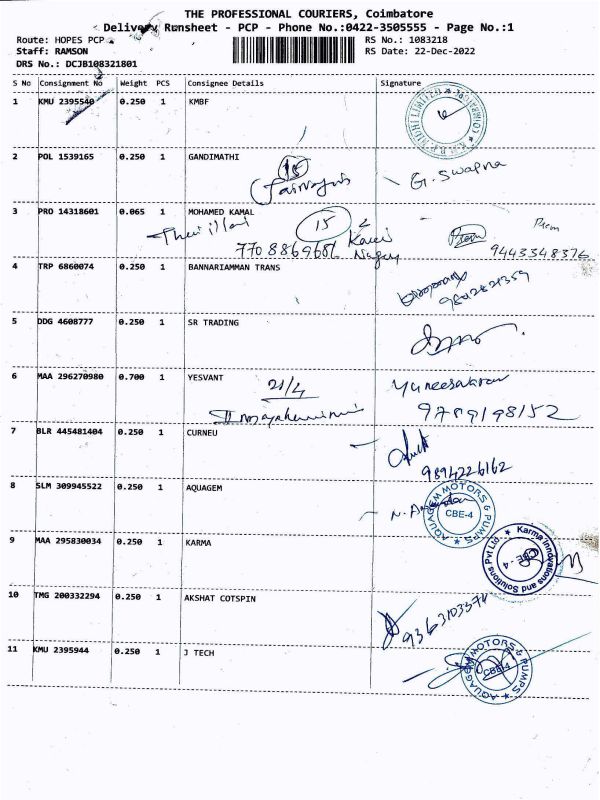 THE PROFESSIONAL COURIERS, Coimbatore
Delivery Runsheet - PCP - Phone No.:0422-3505555 - Page No.:1
Route: HOPES PCP
RS No.: 1083218
Staff: RAMSON
RS Date: 22-Dec-2022
DRS No.: DCJB108321801
S No Consignment No Weight PCS Consignee Details Signature
1 KMU 2395540 0.250 1 KMBF
2 POL 1539165 0.250 1 GANDIMATHI
15
G. Swapna
3 PRO 14318601 0.065 1 MOHAMED KAMAL
15
Prem
7708869686
9443348376
4 TRP 6860074 0.250 1 BANNARIAMMAN TRANS
9842821359
5 DDG 4608777 0.250 1 SR TRADING
6 MAA 296270980 0.700 1 YESVANT
21/4
9789198152
7 BLR 445481404 0.250 1 CURNEU
9894226162
8 SLM 309945522 0.250 1 AQUAGEM
AQUAGEM MOTORS & PUMPS
CBE-4
9 MAA 295830034 0.250 1 KARMA
Karma Innovations and Solutions Pvt Ltd.
CBE-4
10 TMG 200332294 0.250 1 AKSHAT COTSPIN
9363103374
11 KMU 2395944 0.250 1 J TECH
AQUAGEM MOTORS & PUMPS
CBE-4